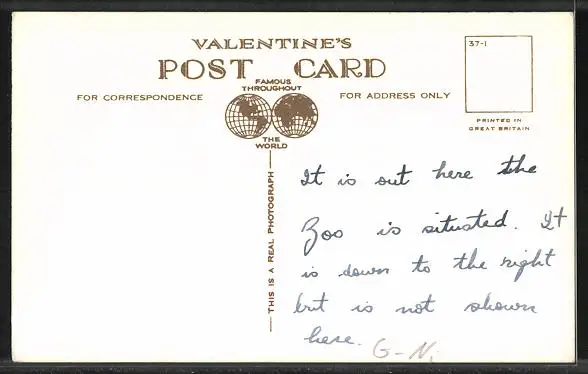 VALENTINE'S
POST CARD
FAMOUS
THROUGHOUT
THE
WORLD
FOR CORRESPONDENCE
FOR ADDRESS ONLY
37-1
PRINTED IN
GREAT BRITAIN
THIS IS A REAL PHOTOGRAPH
It is out here the
Zoo is situated. It
is down to the right
but is not shown
here.
G-N.